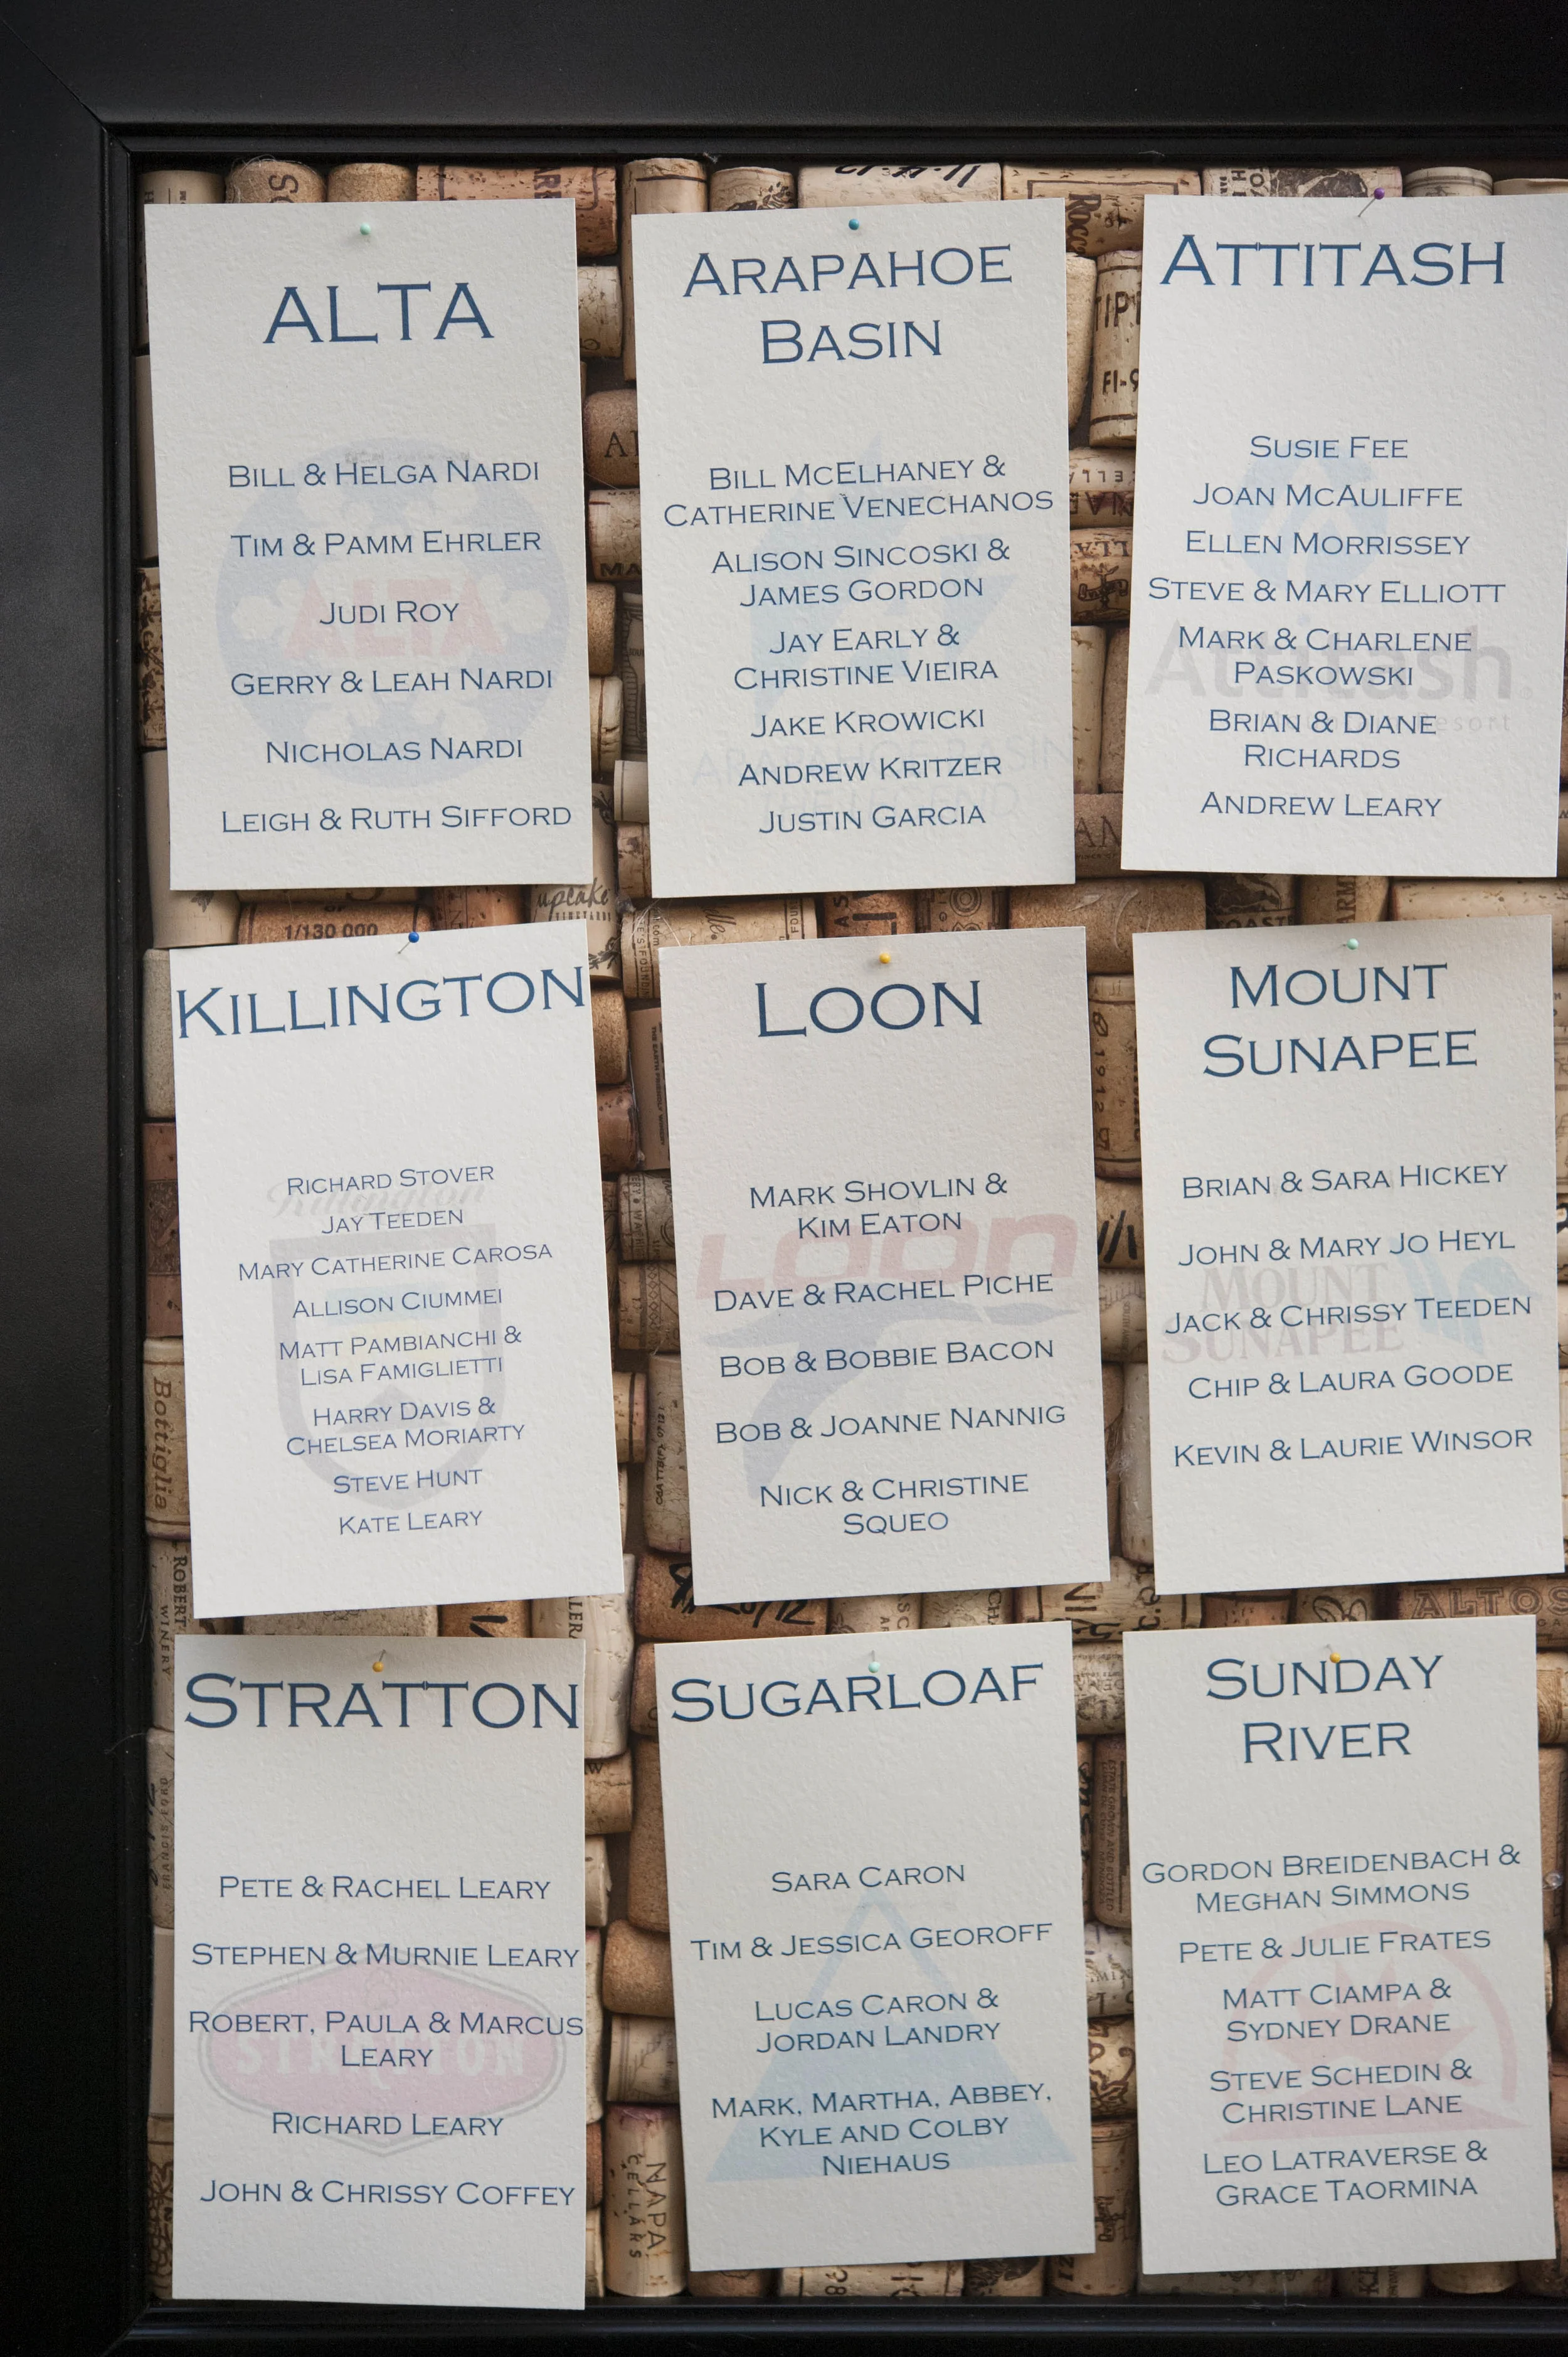 ALTA
BILL & HELGA NARDI
TIM & PAMM EHRLER
JUDI ROY
GERRY & LEAH NARDI
NICHOLAS NARDI
LEIGH & RUTH SIFFORD
ARAPAHOE
BASIN
BILL MCELHANEY &
CATHERINE VENECHANOS
ALISON SINCOSKI &
JAMES GORDON
JAY EARLY &
CHRISTINE VIEIRA
JAKE KROWICKI
ANDREW KRITZER
JUSTIN GARCIA
ATTITASH
SUSIE FEE
JOAN MCAULIFFE
ELLEN MORRISSEY
STEVE & MARY ELLIOTT
MARK & CHARLENE
PASKOWSKI
BRIAN & DIANE
RICHARDS
ANDREW LEARY
Attitash
Resort
1/130 000
upcake
KILLINGTON
RICHARD STOVER
JAY TEEDEN
MARY CATHERINE CAROSA
ALLISON CIUMMEI
MATT PAMBIANCHI &
LISA FAMIGLIETTI
HARRY DAVIS &
CHELSEA MORIARTY
STEVE HUNT
KATE LEARY
Killington
LOON
MARK SHOVLIN &
KIM EATON
DAVE & RACHEL PICHE
BOB & BOBBIE BACON
BOB & JOANNE NANNIG
NICK & CHRISTINE
SQUEO
LOON
MOUNT
SUNAPEE
BRIAN & SARA HICKEY
JOHN & MARY JO HEYL
JACK & CHRISSY TEEDEN
CHIP & LAURA GOODE
KEVIN & LAURIE WINSOR
MOUNT
SUNAPEE
Bottiglia
ROBERT
WINERY
ALTOS
STRATTON
PETE & RACHEL LEARY
STEPHEN & MURNIE LEARY
ROBERT, PAULA & MARCUS
LEARY
RICHARD LEARY
JOHN & CHRISSY COFFEY
STRATTON
SUGARLOAF
SARA CARON
TIM & JESSICA GEOROFF
LUCAS CARON &
JORDAN LANDRY
MARK, MARTHA, ABBEY,
KYLE AND COLBY
NIEHAUS
SUNDAY
RIVER
GORDON BREIDENBACH &
MEGHAN SIMMONS
PETE & JULIE FRATES
MATT CIAMPA &
SYDNEY DRANE
STEVE SCHEDIN &
CHRISTINE LANE
LEO LATRAVERSE &
GRACE TAORMINA
NAPA
CELLARS